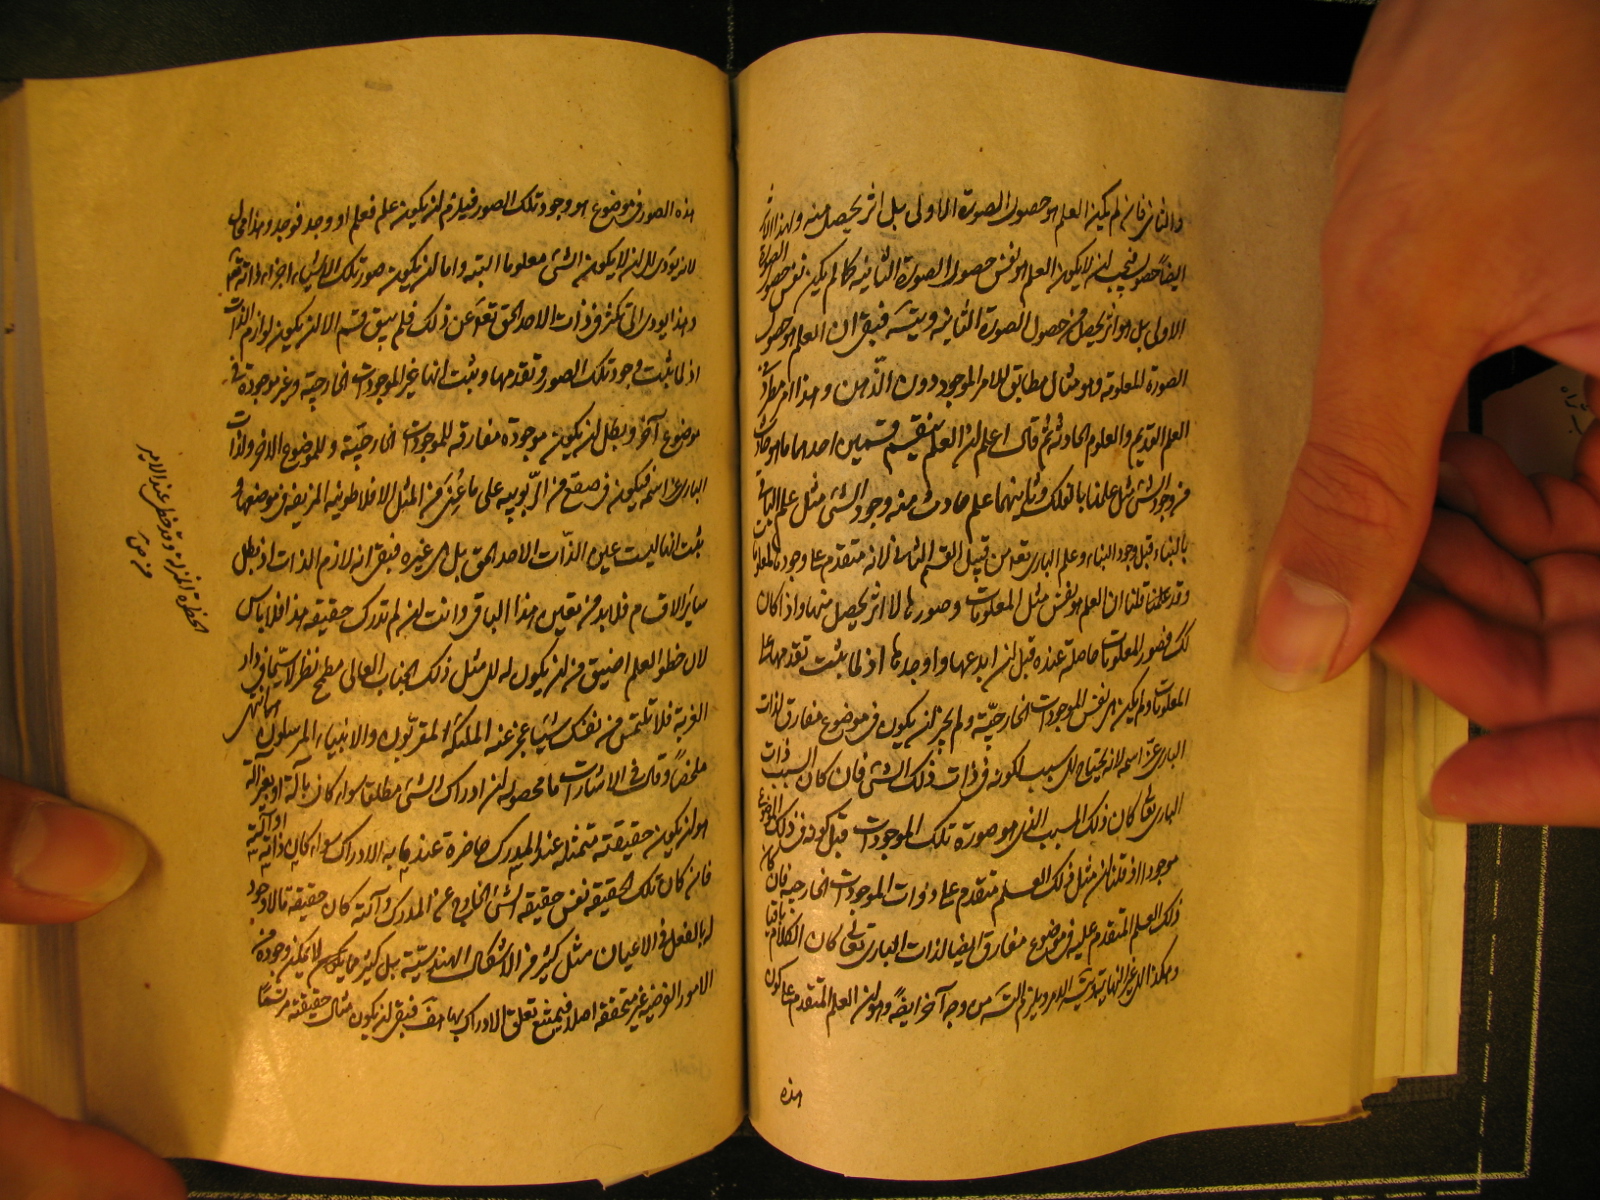 والثانى فان لم يكن العلم هو حصول الصورة الاولى بل اثر يحصل منه ولهذا الاثر
ايضا حصول فيجب ان لا يكون العلم هو نفس حصول الصورة الثانيه كما لم يكن نفس حصول الصورة
الاولى بل هو اثر يحصل من حصول الصورة الثانيه ويتسه فبقى ان العلم هو حصول
الصورة المعلومة وهو مثال مطابق للامر الموجود دون الذهن وهذا امر مطرد فى
العلم القديم والعلوم الحادثه ثم قال اعلم ان العلم ينقسم قسمين احدهما ما هو حادث
من وجود الشئ مثل علمنا بالفلك وثانيهما علم حادث منه وجود الشئ مثل علم البانى
بالبناء قبل وجود البناء وعلم البارى تعالى من قبيل القسم الثانى لانه متقدم على وجود المعلومات
وقد علمنا قلنا ان العلم هو نفس مثل المعلومات وصورها لا اثر يحصل منها واذا كان
كك فصور المعلومات حاصلة عنده قبل ان ابدعها واوجدها اذ لما يثبت تقدمها على
المعلومات ولم يكن هى نفس الموجودات الخارجيّة ولم يجز ان يكون فى موضوع مفارق لذات
البارى عز اسمه لانه يحتاج الى سبب لكونه فى ذات ذلك الشئ فان كان السبب ذات
البارى تعالى كان ذلك السبب الذى هو صورة تلك الموجودات قبل كونه فى ذلك الموضوع
موجودا اذ قلنا ان مثل ذلك العلم متقدم على ذوات الموجودات الخارجية فان كان
ذلك العلم المتقدم عليه فى موضوع مفارق ايضا لذات البارى تعالى كان الكلام باقيا
وهكذا الى غير النهاية ويلزم التسه من وجه آخر ايضه وهو ان العلم المتقدم على كون
هذه
هذه الصور فى موضوع هو وجود تلك الصور فيلزم ان يكون علم فعلم او وجد فوجد وهذا محال
لانه يؤدى الى ان لا يكون الشئ معلوما البته واما ان يكون صور تلك الاشياء اجزاء ذاته تعه
وهذا يودى الى تكثر فى ذات الاحد الحق تعه عن ذلك فلم يبق قسم الا ان يكون لوازم الذات
اذ لما يثبت وجود تلك الصور وتقدمها ويثبت انها غير الموجودات الخارجية وغير موجودة فى
موضوع آخر وبطل ان يكون موجودة مفارقه للموجودات الخارجيّة وللموضوع الاخر ولذات
البارى عز اسمه فيكون فى صقع من الربوبيه على ما عُنِىَ من المثل الافلاطونيه المزيفه فى موضعها و
يثبت انها ليست عين الذّات الاحد الحق بل هى غيره فبقى انه لازم الذات اذ بطل
سائر الاقسام فلا بد من تعين هذا الباقى وانت ان لم تدرك حقيقه هذا فلا باس
لان خطو العلم اضيق من ان يكون له الى مثل ذلك الجناب العالى مطمح نظر لاسيما فى دار
الغربة فلا تلتمس من نفسك شيئا عجز عنه الملئكة المقربون والانبياء المرسلون انتهى
ملخصا وقال فى الاشارات ما محصوله ان ادراك الشئ مطلقا سواء كان بآلة او بغير آلة
هو ان يكون حقيقته متمثله عند المدرك حاضرة عند ما به الادراك سواء كان ذاته او آلته
فان كان تلك الحقيقه نفس حقيقه الشئ الخارج عن المدرك وآلته كان حقيقة ما لا وجود
له بالفعل فى الاعيان مثل كثير من الاشكال الهندسيّة بل كثير مما يكون لا يمكن وجوده من
الامور الفرضيه غير متحققه اصلا فيمتنع تعلق الادراك بها هف فبقى ان يكون مثال حقيقته مرتسمًا